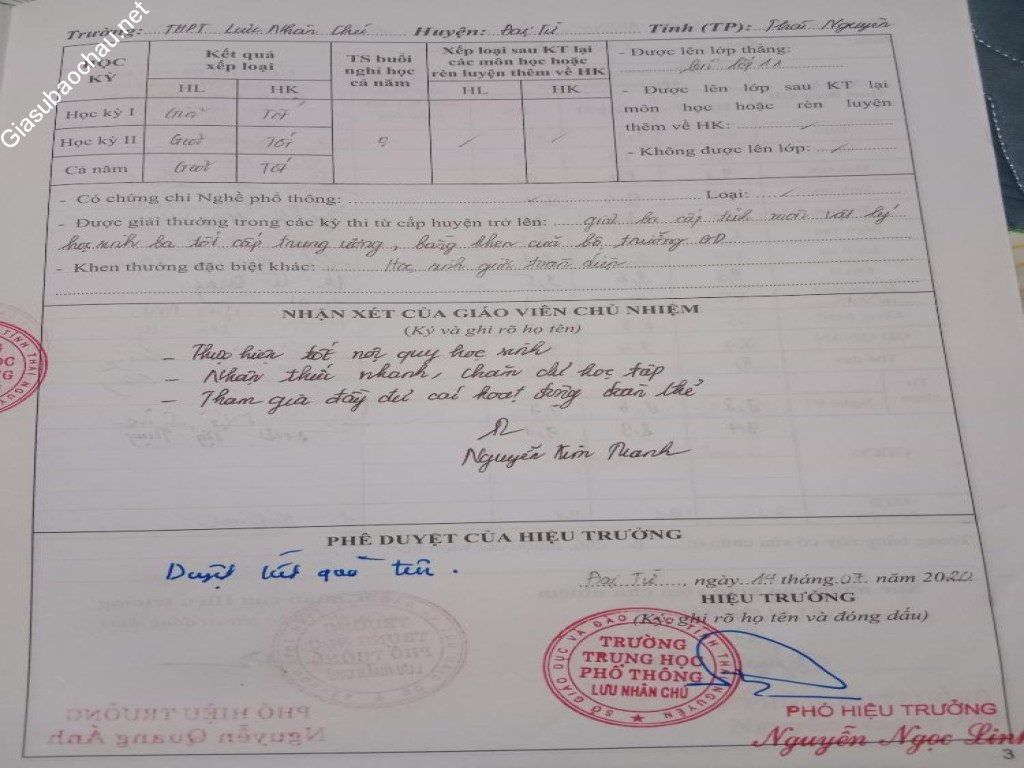 Giasubaochau.net
Trường: THPT Lưu Nhân Chú Huyện: Đại Từ Tỉnh (TP): Thái Nguyên
HỌC KỲ
Kết quả xếp loại
HL HK
TS buổi nghỉ học cả năm
Xếp loại sau KT lại các môn học hoặc rèn luyện thêm về HK
HL HK
Học kỳ I Giỏi Tốt
Học kỳ II Giỏi Tốt
Cả năm Giỏi Tốt
- Được lên lớp thẳng:
lớp 11
- Được lên lớp sau KT lại
môn học hoặc rèn luyện
thêm về HK:
- Không được lên lớp:
- Có chứng chỉ Nghề phổ thông: Loại:
- Được giải thưởng trong các kỳ thi từ cấp huyện trở lên: giải ba cấp tỉnh môn vật lý
học sinh ba tốt cấp trung ương, bằng khen của bộ trưởng GD
- Khen thưởng đặc biệt khác: Học sinh giỏi toàn diện
NHẬN XÉT CỦA GIÁO VIÊN CHỦ NHIỆM
(Ký và ghi rõ họ tên)
- Thực hiện tốt nội quy học sinh
- Nhận thức nhanh, chăm chỉ học tập
- Tham gia đầy đủ các hoạt động đoàn thể
Nguyễn Kim Thanh
PHÊ DUYỆT CỦA HIỆU TRƯỞNG
Duyệt kết quả trên.
Đại Từ, ngày 14 tháng 07 năm 2020
HIỆU TRƯỞNG
(Ký, ghi rõ họ tên và đóng dấu)
SỞ GIÁO DỤC VÀ ĐÀO TẠO TỈNH THÁI NGUYÊN
TRƯỜNG
TRUNG HỌC
PHỔ THÔNG
LƯU NHÂN CHÚ
PHÓ HIỆU TRƯỞNG
Nguyễn Ngọc Linh
PHÓ HIỆU TRƯỞNG
Nguyễn Quang Ánh
3